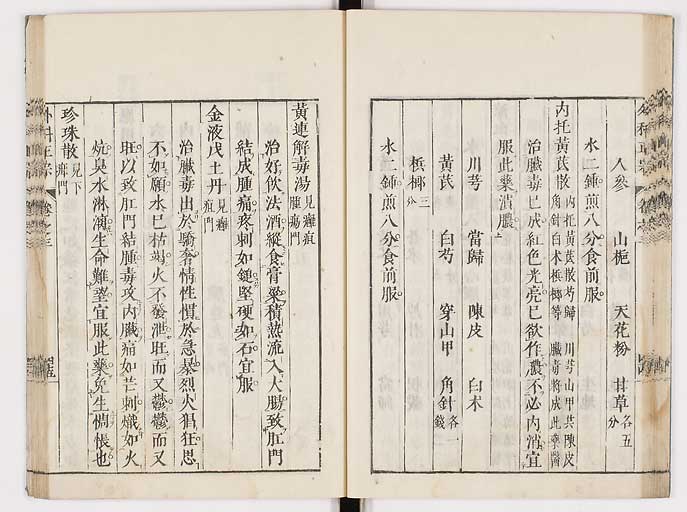 人參 山梔 天花粉 甘草 各五分
水二鍾煎八分食前服
內托黃芪散 內托黃芪散芍歸 川芎山甲共陳皮 角針白朮檳榔等 臟毒將成此藥醫
治臟毒已成紅色光亮已欲作膿不必內消宜
服此藥消膿
川芎 當歸 陳皮 白朮
黃芪 白芍 穿山甲 角針 各一錢
檳榔 三分
水二鍾煎八分食前服
黃連解毒湯 見癰疽腫瘍門
治好飲法酒縱食膏粱積熱流入大腸致肛門
結成腫痛疼刺如鏈堅硬如石宜服
金液戊土丹 見癰疽門
治臟毒出於驕奢情性慣於急暴烈火猖狂思
不如願水已枯竭火不發泄旺而又鬱鬱而又
旺以致肛門結腫毒攻內臟痛如芒刺熾如火
焼臭水淋漓生命難望宜服此藥免生惆悵也
珍珠散 見下疳門
外科正宗 卷之三